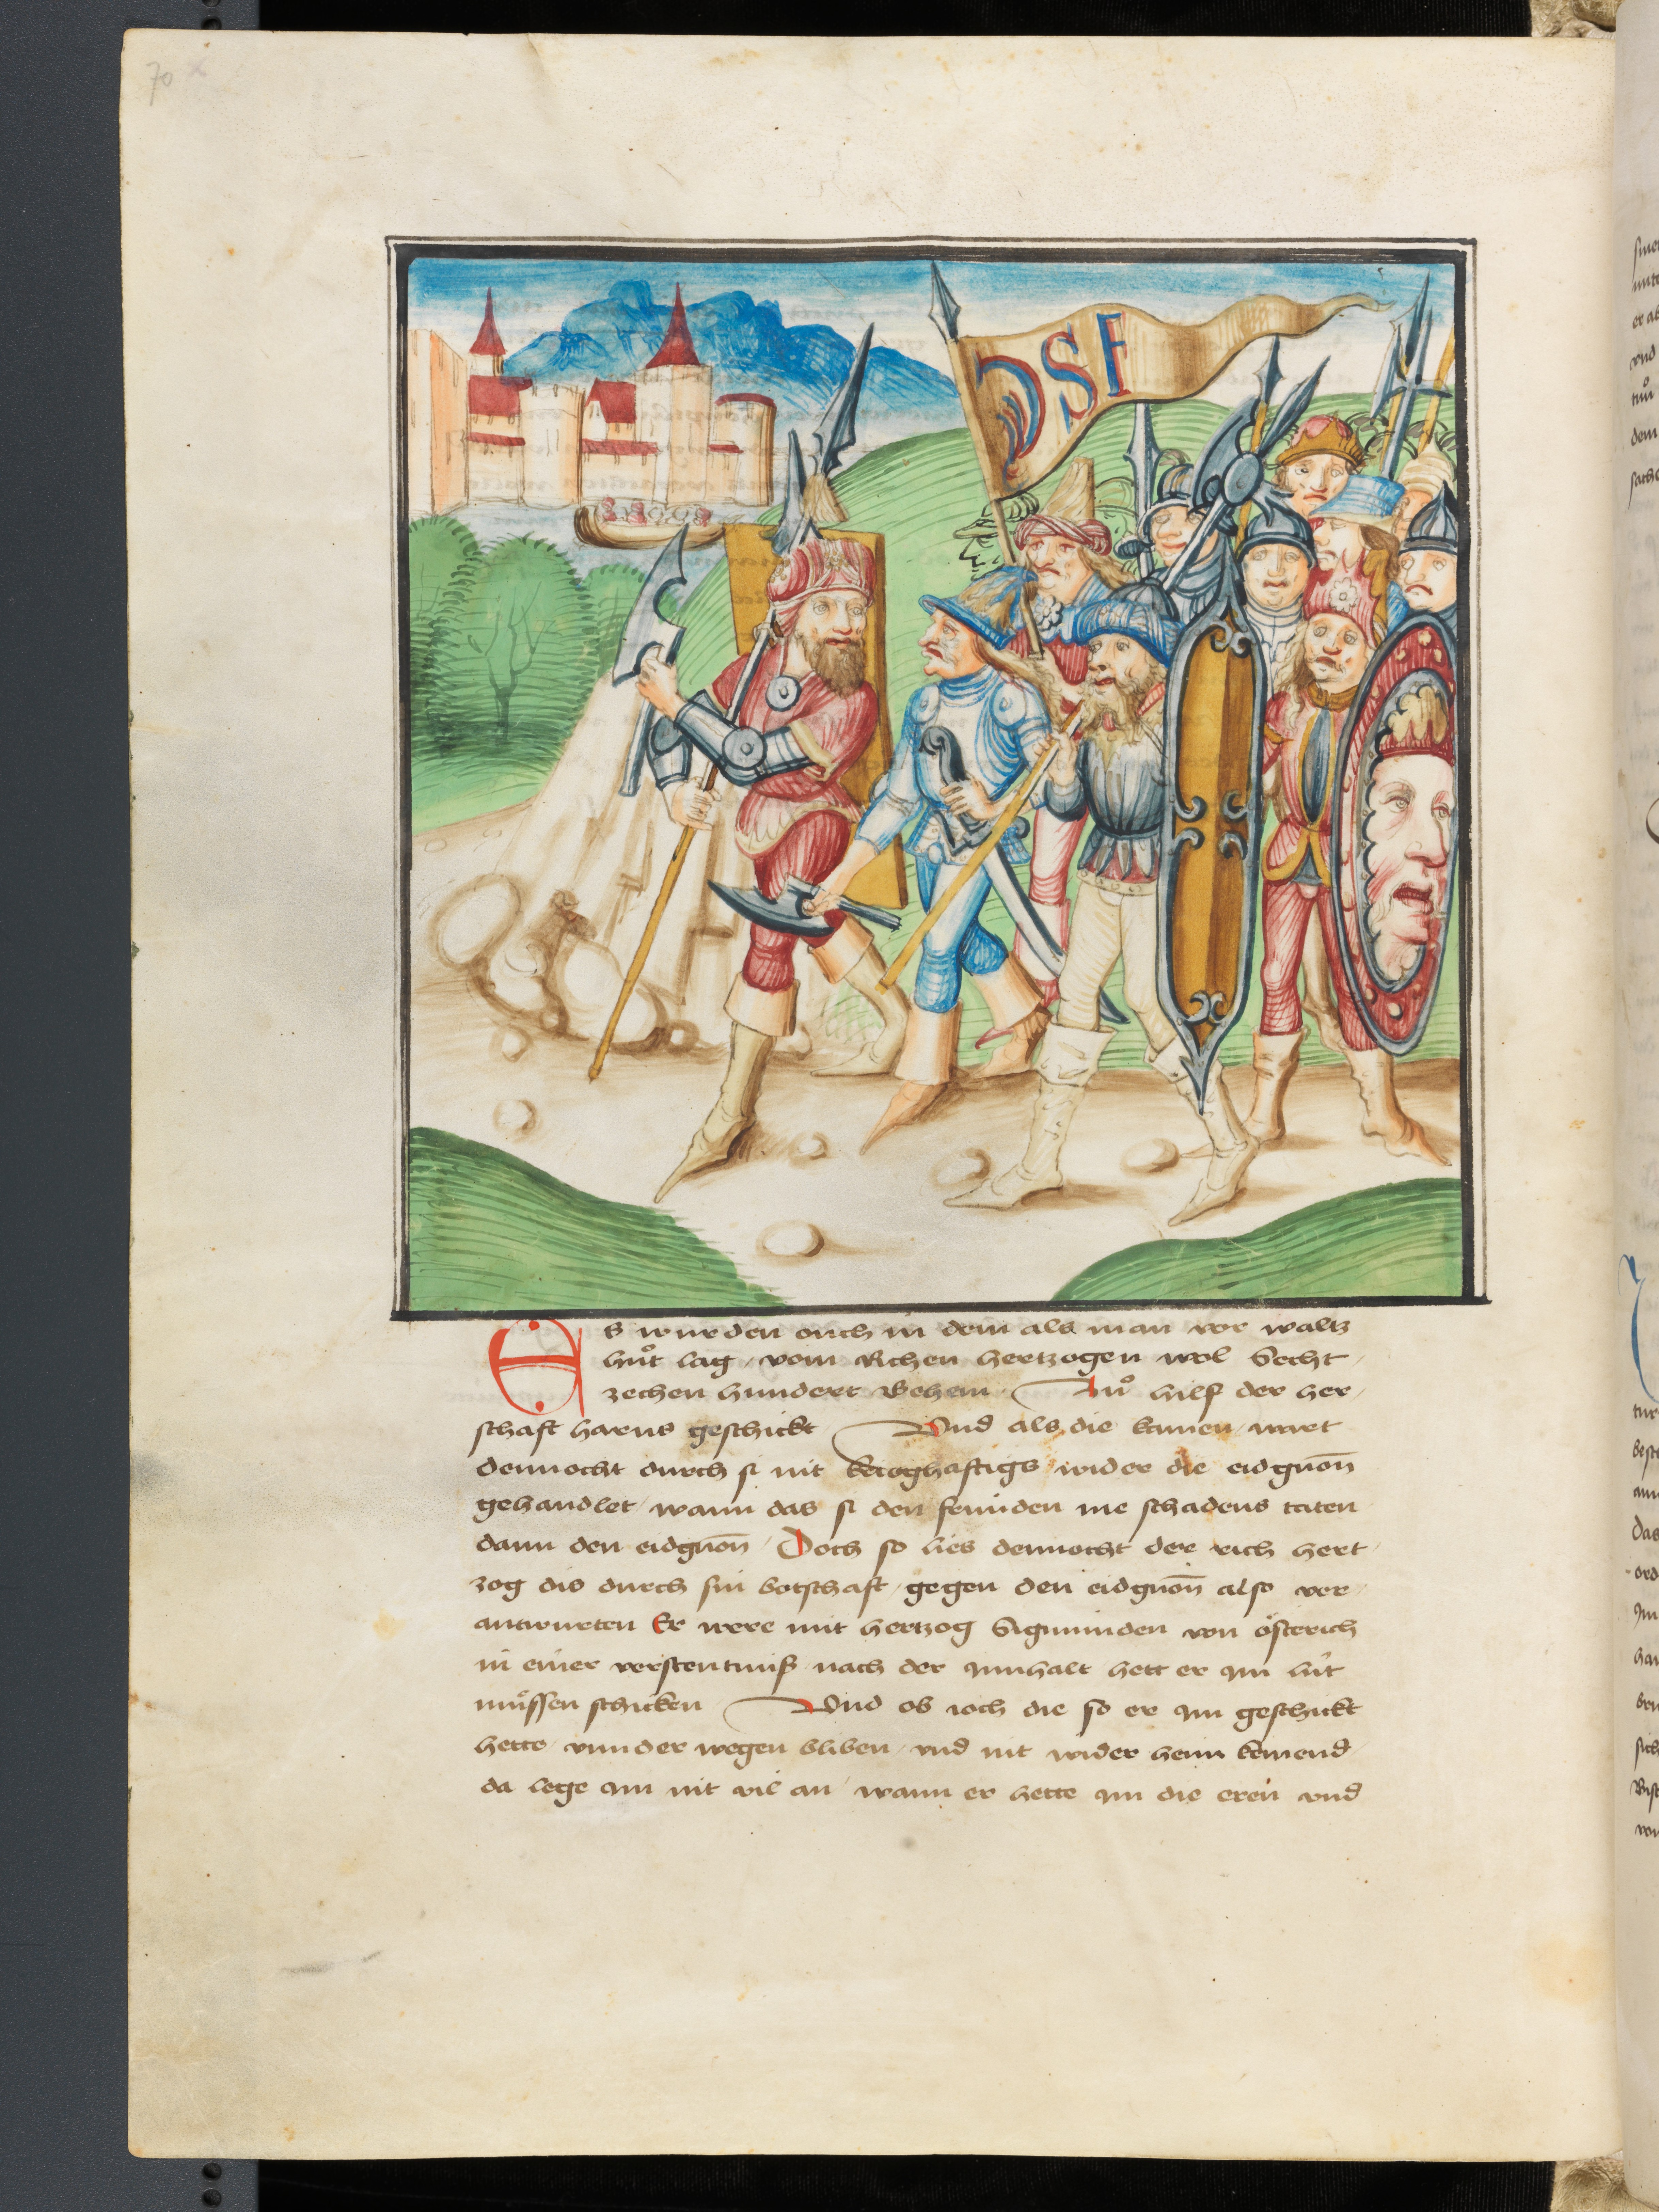 70 x
DSF
Es wurden ouch in dem als man vor waltz
huͦt lag / vom Richen hertzogen wol Secht /
zechen hundert Behem Zuͦ hilf der her /
schaft harus geschickt Und als die kamen / wart
dennocht durch si nit krieghaftigs wider die eidgnon̄
gehandlet / wann das si den feinnden me schadens taten
dann den eidgnon̄ / Doch so lies dennocht der rich hert /
zog dis durch sin botschaft / gegen den eidgnon̄ also ver /
antwurten Er were mit hertzog Sigmunden von oͤsterich
in einer verstentniß nach der Innhalt hett er Im luͤt
muͤssen schicken Und ob ioch die so er Im geschickt
hette / vnnder wegen bliben / vnd nit wider heim kemend
da lege Im nit vil an / wann er hette Im die eren vnd